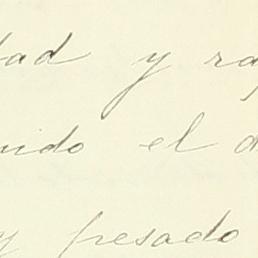 dad y ra
uido el d
y pesado